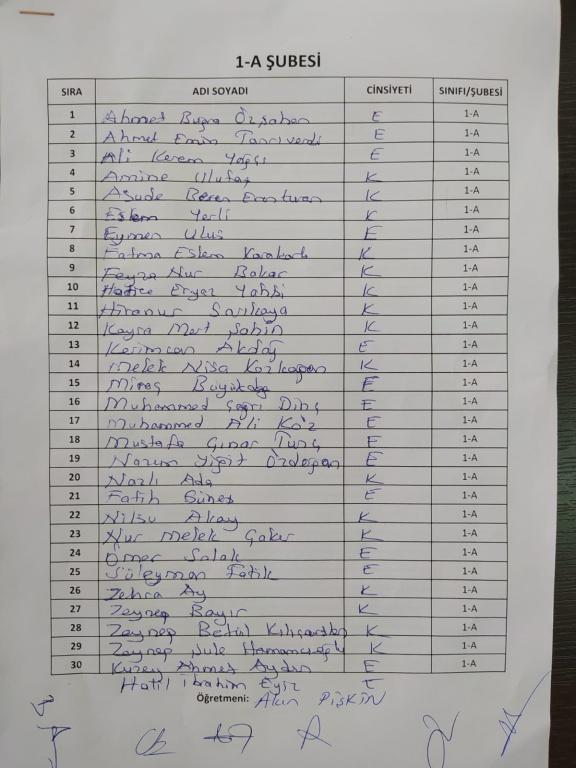 1-A ŞUBESİ
SIRA ADI SOYADI CİNSİYETİ SINIFI/ŞUBESİ
1 Ahmet Buğra Özşaban E 1-A
2 Ahmet Emin Tanrıverdi E 1-A
3 Ali Kerem Yağcı E 1-A
4 Amine Ulutaş K 1-A
5 Asude Beren K 1-A
6 Eslem Yerli K 1-A
7 Eymen Ulus E 1-A
8 Fatma Eslem K 1-A
9 Feyza Nur Bakar K 1-A
10 Hatice K 1-A
11 Hiranur Sarıkaya K 1-A
12 Kayra Mert Şahin K 1-A
13 Kerimcan Akdağ E 1-A
14 Melek Nisa K 1-A
15 Miraç E 1-A
16 Muhammed Çağrı Dinç E 1-A
17 Muhammed Ali Köz E 1-A
18 Mustafa Çınar Tunç E 1-A
19 Nazım Yiğit Özdoğan E 1-A
20 Nazlı Ada K 1-A
21 Fatih Güneş E 1-A
22 Nilsu Akay K 1-A
23 Nur Melek Çakır K 1-A
24 Ömer Salak E 1-A
25 Süleyman Fatik E 1-A
26 Zehra Ay K 1-A
27 Zeynep Bayır K 1-A
28 Zeynep Betül Kılıçarslan K 1-A
29 Zeynep Jule Hamamcıoğlu K 1-A
30 Kuzey Ahmet Aydın E 1-A
Halil İbrahim E
Öğretmeni: PİŞKİN